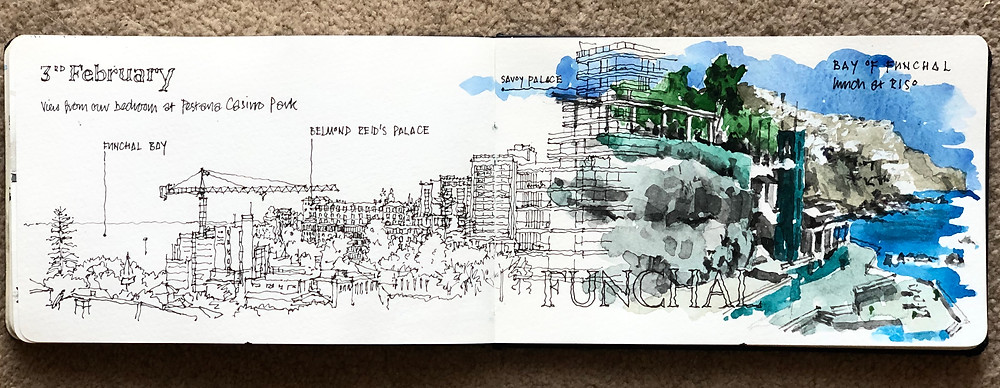 3RD February
View from our bedroom at Pestana Casino Park
FUNCHAL BAY
BELMOND REID'S PALACE
SAVOY PALACE
BAY OF FUNCHAL
lunch at RISO
FUNCHAL